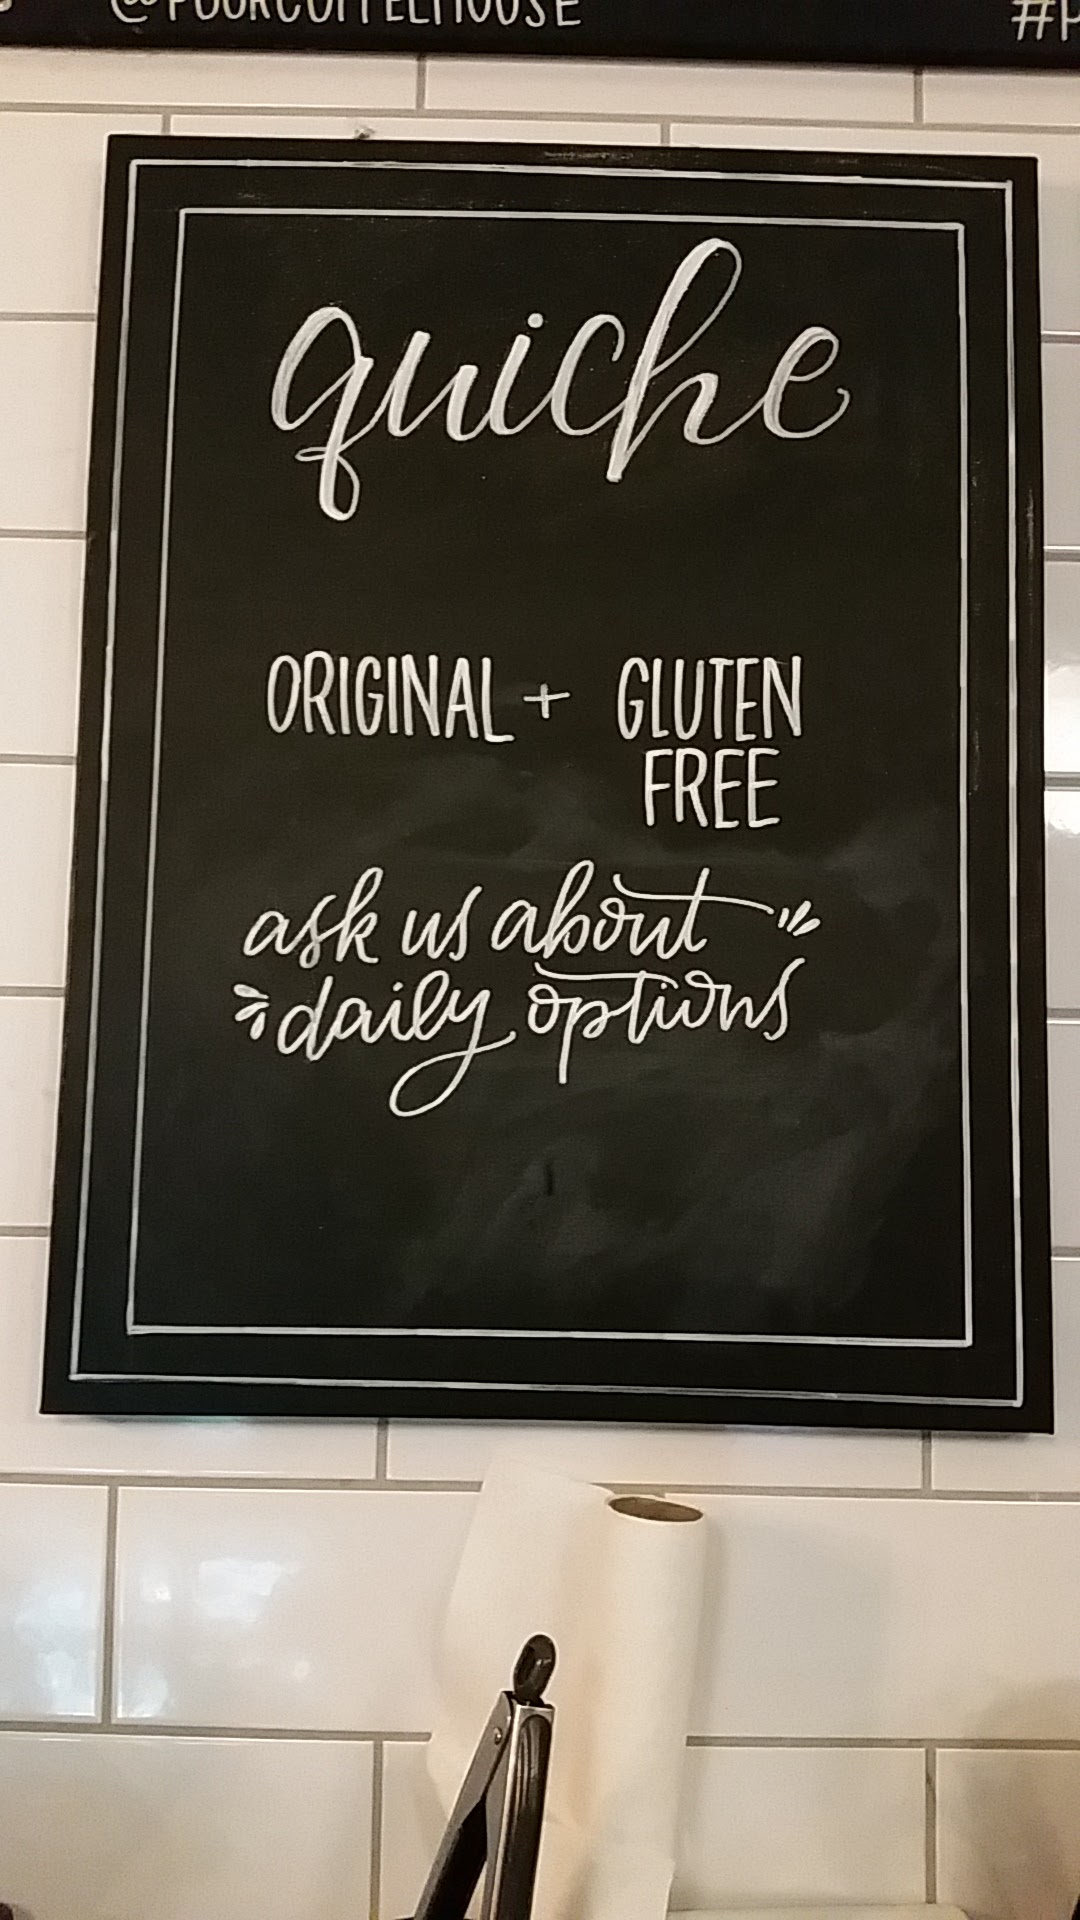 @POURCOFFEEHOUSE
quiche
ORIGINAL + GLUTEN
FREE
ask us about
daily options